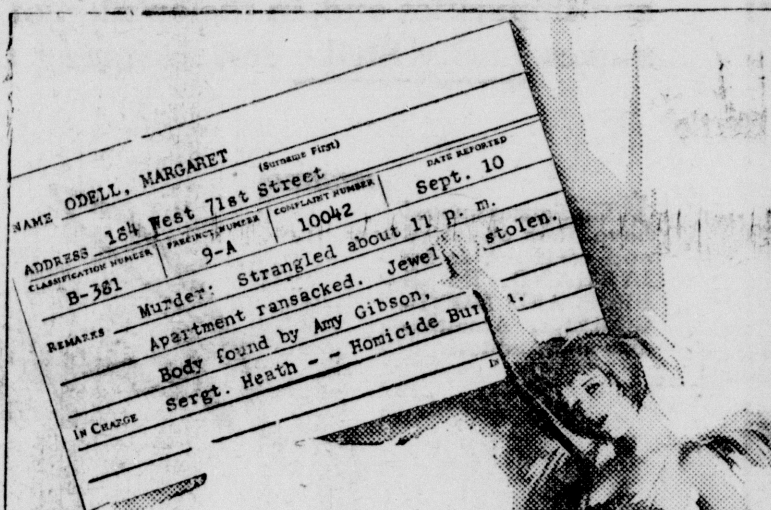 NAME ODELL, MARGARET
(Surname First)
ADDRESS 184 West 71st Street
CLASSIFICATION NUMBER PRECINCT NUMBER COMPLAINT NUMBER DATE REPORTED
B-381 9-A 10042 Sept. 10
REMARKS Murder: Strangled about 11 p. m.
Apartment ransacked. Jewel stolen.
Body found by Amy Gibson,
IN CHARGE Sergt. Heath - - Homicide Bur